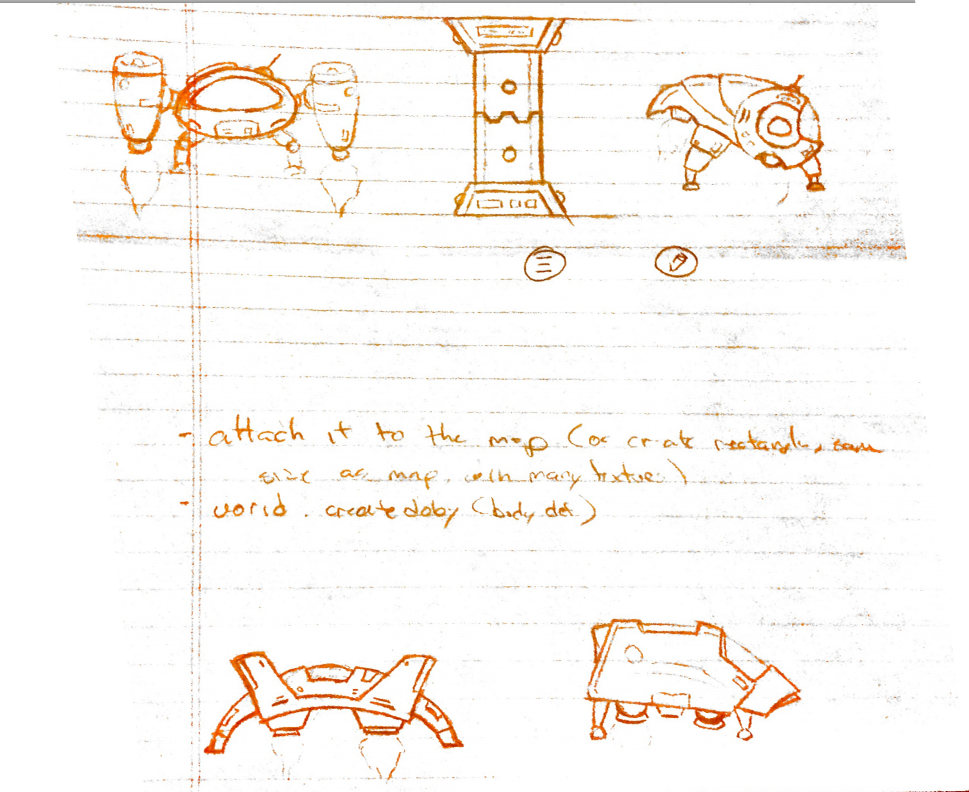 - attach it to the map (or create rectangle, same
size as map. with many textures)
- world. create doby (body def)